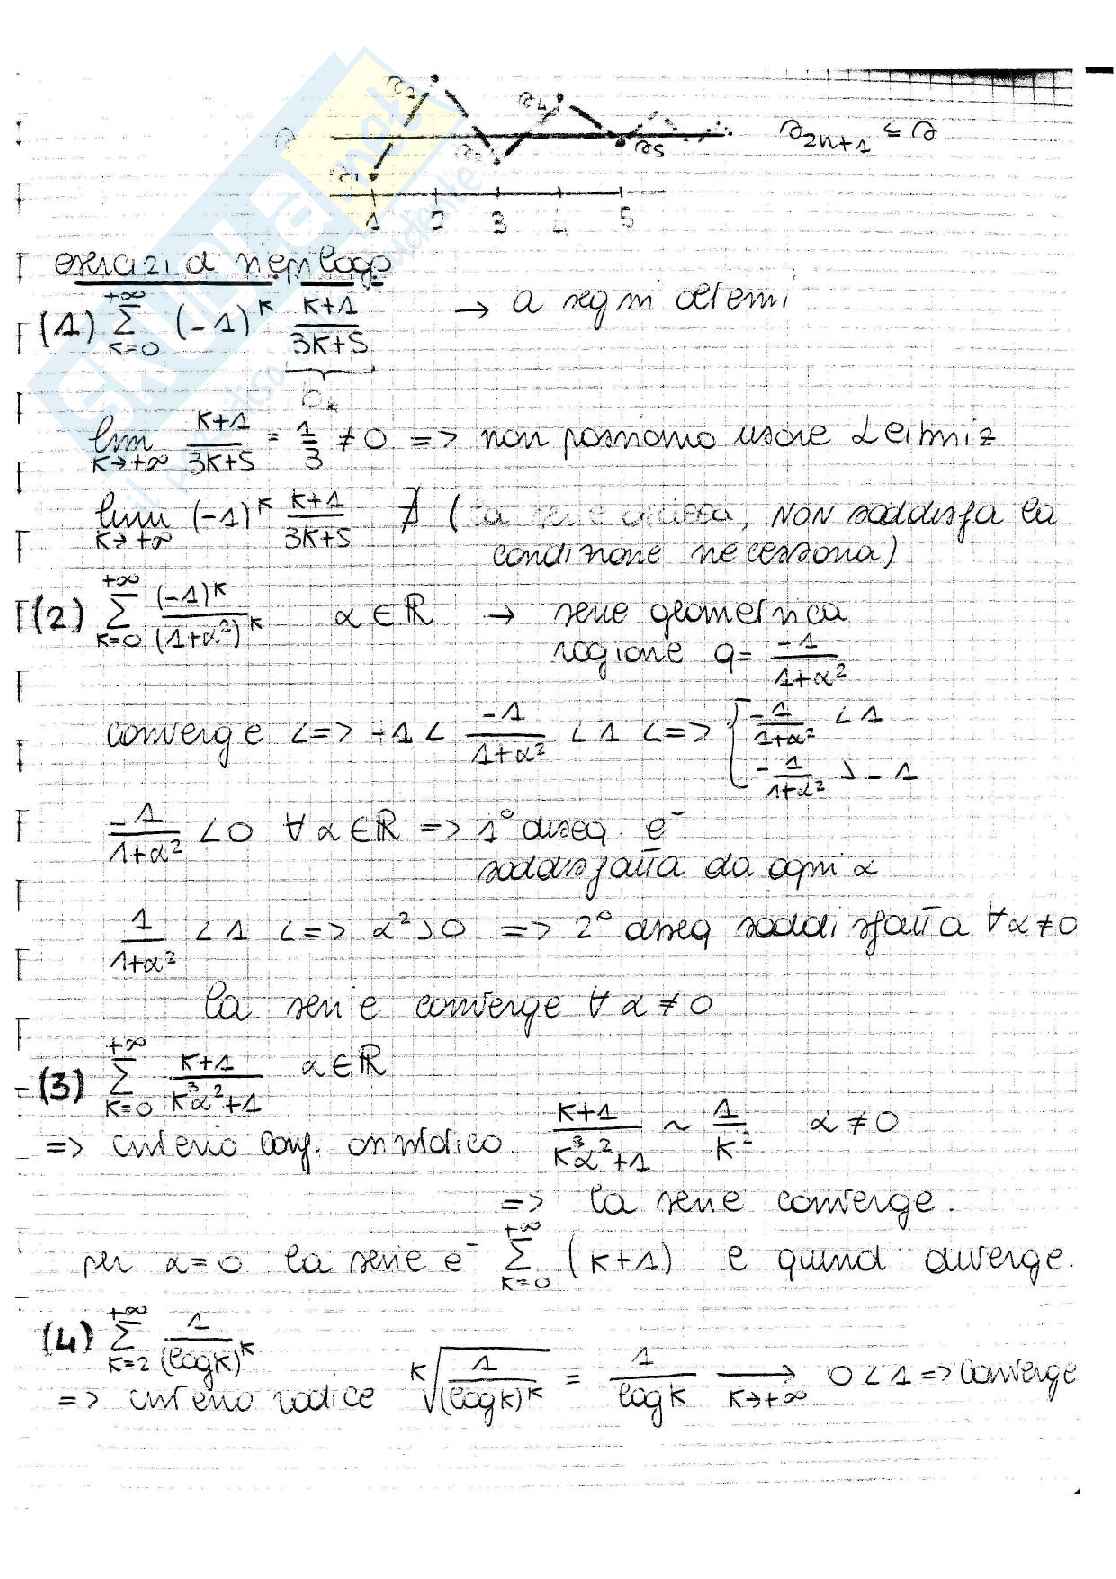 a₂ a₄
a a₅ a₂ₙ₊₁ ≤ a
a₁ a₃
1 2 3 4 5
esercizi di riepilogo
(1) ∑_{k=0}^{+∞} (-1)^k (k+1)/(3k+5) → a segni alterni
b_k
lim_{k→+∞} (k+1)/(3k+5) = 1/3 ≠ 0 => non possiamo usare Leibniz
lim_{k→+∞} (-1)^k (k+1)/(3k+5) ∄ (la serie, NON soddisfa la
condizione necessaria)
(2) ∑_{k=0}^{+∞} (-1)^k/(1+α²)^k α∈ℝ → serie geometrica
ragione q= -1/(1+α²)
converge <=> -1 < -1/(1+α²) < 1 <=> { -1/(1+α²) < 1
-1/(1+α²) > -1
-1/(1+α²) < 0 ∀ α∈ℝ => 1° diseq. è
soddisfatta da ogni α
1/(1+α²) < 1 <=> α²>0 => 2° diseq soddisfatta ∀α≠0
la serie converge ∀ α≠0
(3) ∑_{k=0}^{+∞} (k+1)/(k³α²+1) α∈ℝ
=> criterio conf. asintotico (k+1)/(k³α²+1) ~ 1/k² α≠0
=> la serie converge.
per α=0 la serie è ∑_{k=0}^{+∞} (k+1) e quindi diverge.
(4) ∑_{k=2}^{+∞} 1/(log k)^k
=> criterio radice ᵏ√(1/(log k)^k) = 1/log k →_{k→+∞} 0<1 => converge